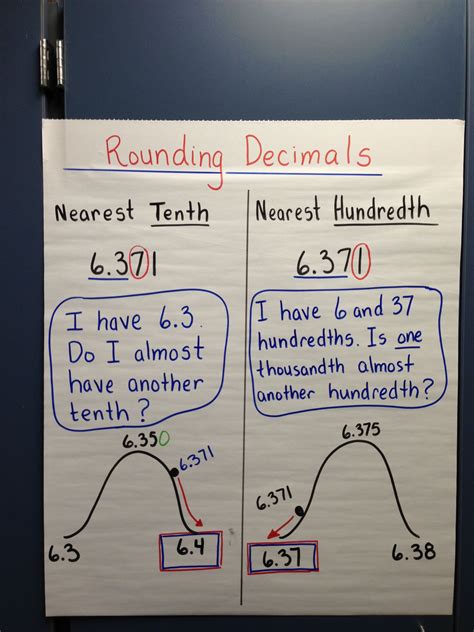 Rounding Decimals
Nearest Tenth
6.371
I have 6.3.
Do I almost
have another
tenth?
6.350
6.371
6.3
6.4
Nearest Hundredth
6.371
I have 6 and 37
hundredths. Is one
thousandth almost
another hundredth?
6.375
6.371
6.37
6.38